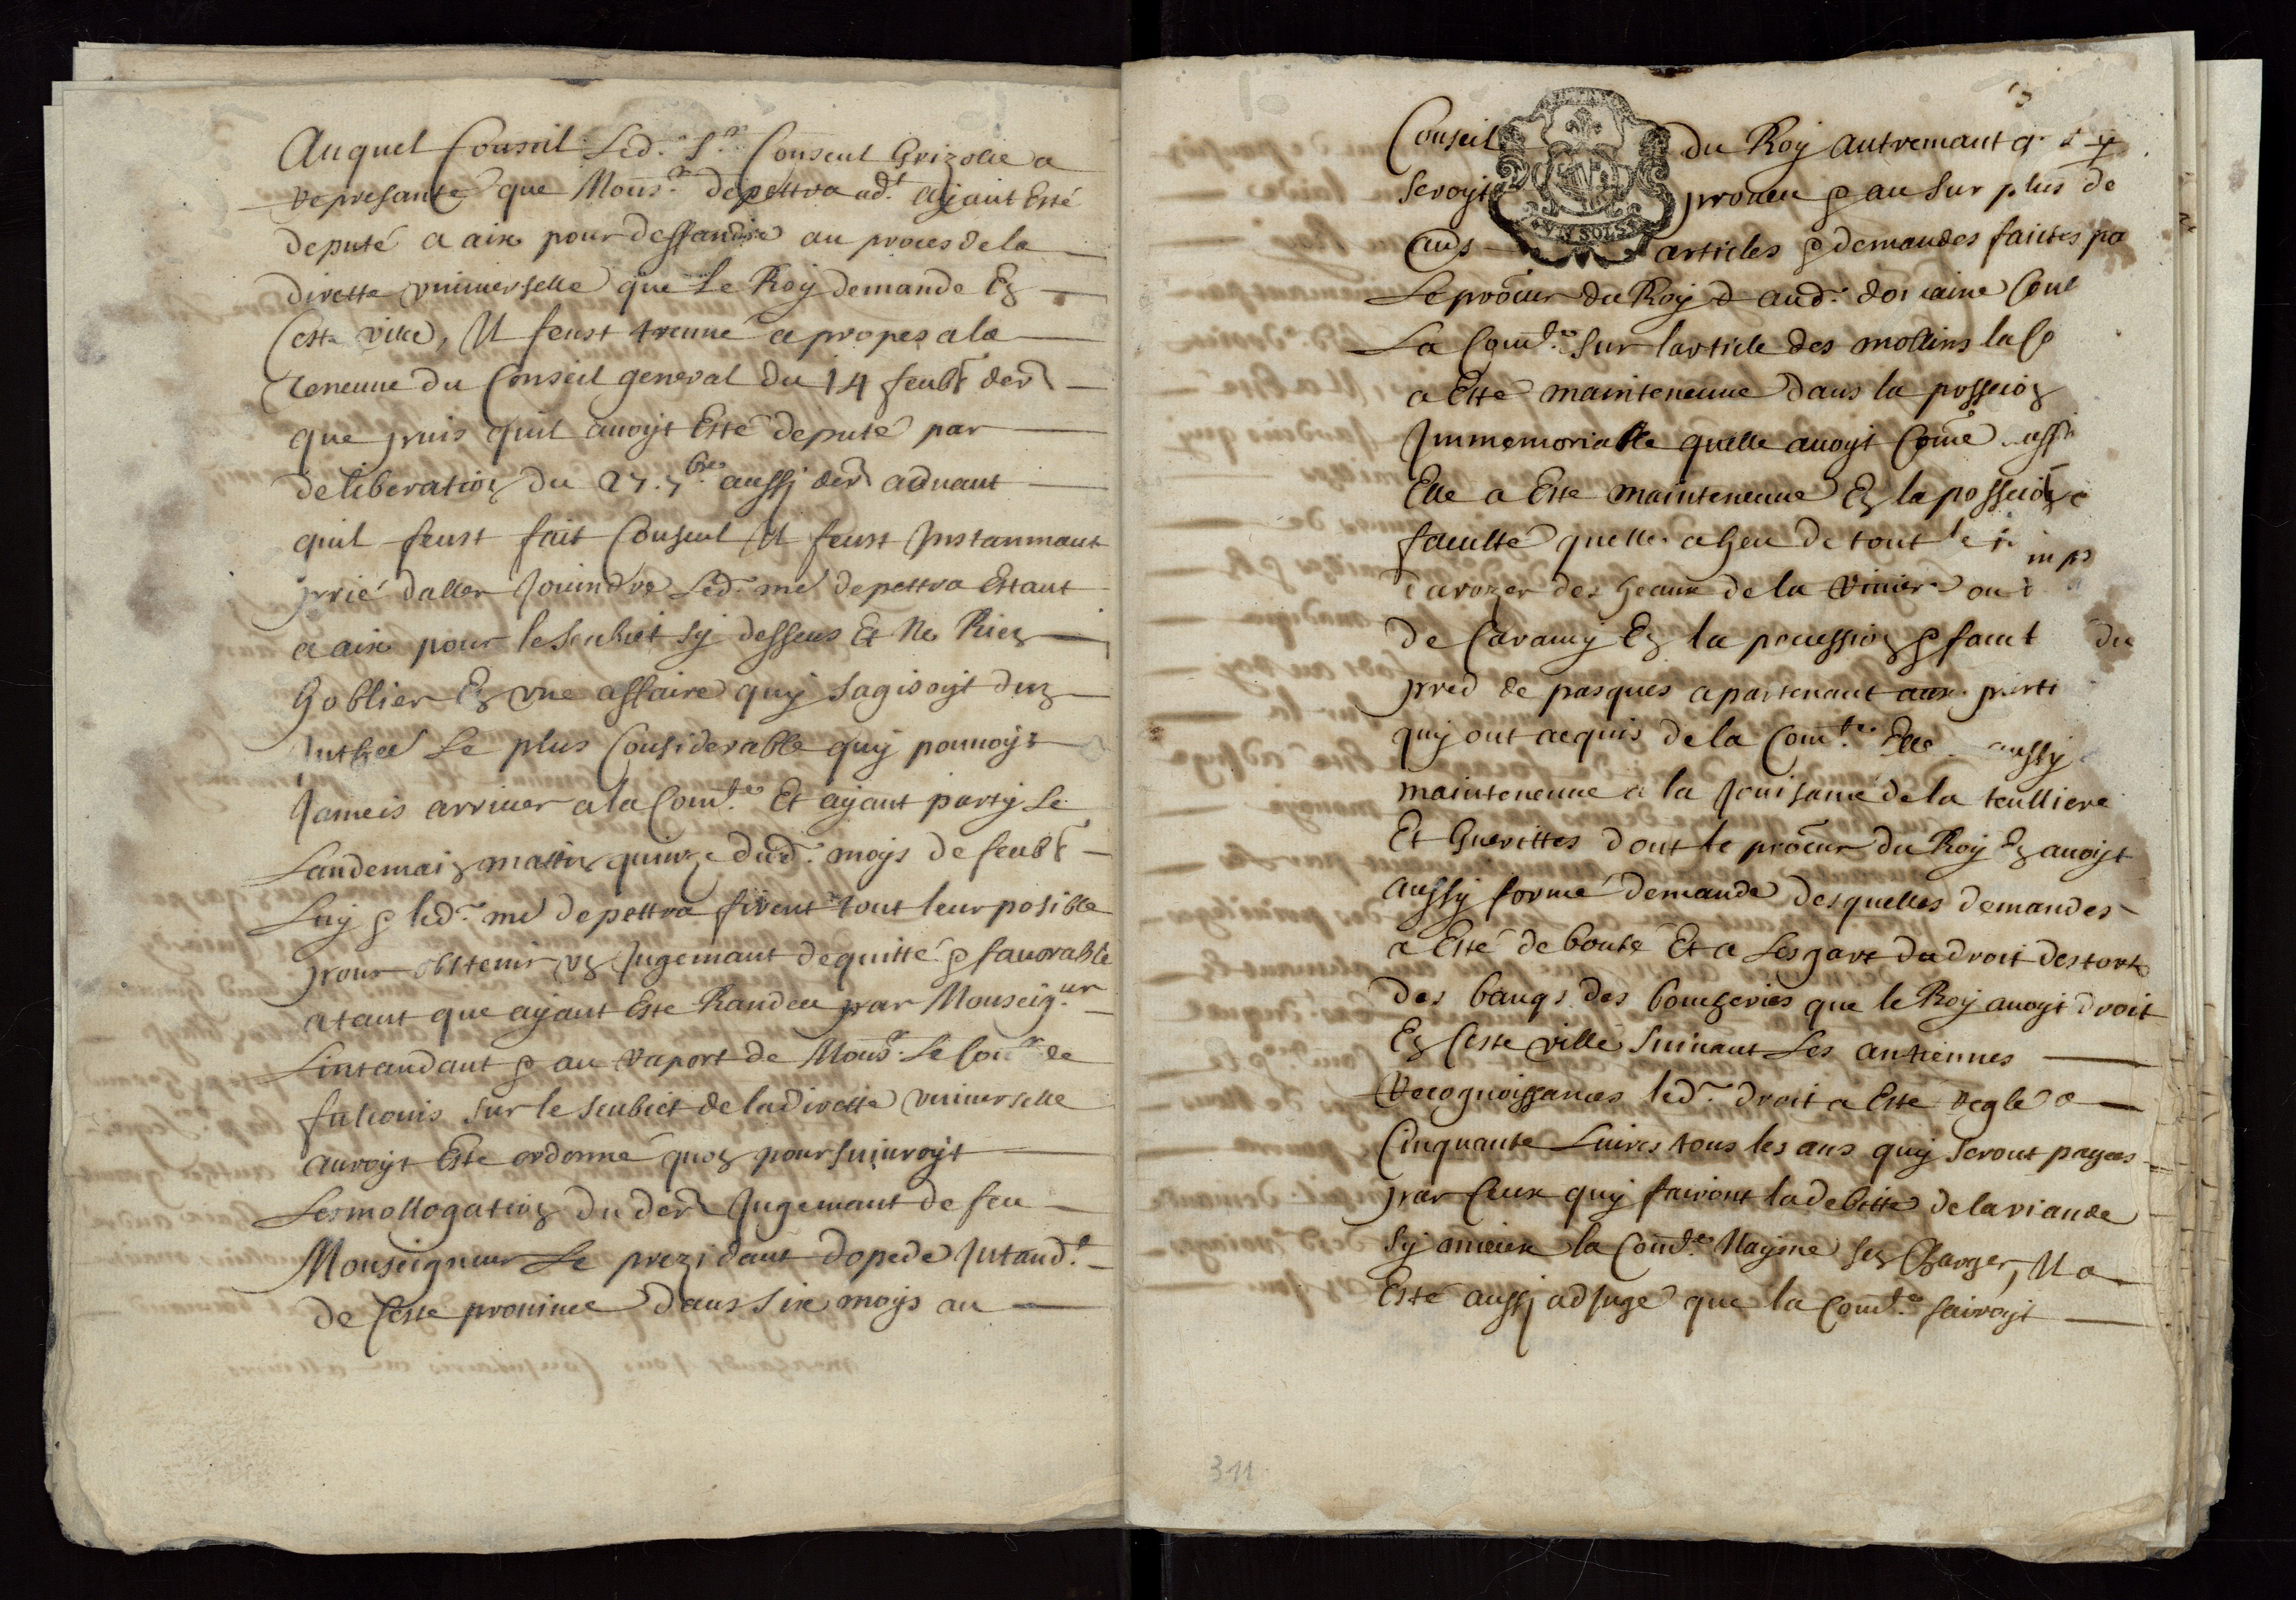 Auquel Conseil Led. Sr. Conseul Grizolle a
representé que Monsr. depettra adt. ayant Esté
deputé a aix pour deffandre au proces de la
dirette vniuerselle que Le Roy demande En
Ceste ville, Il feust treuué a propes a la
teneuue du Conseil general du 14 feubr. der.
que puis quil auoyt Esté deputé par
deliberation du 27. 7bre. aussy der. aduant
quil feust fait Conseul Il feust Instanmant
prié daller Jouindre Led. me depettra Estant
a aix pour le seubiet sy dessus Et Ne Rien
hoblier En vne affaire quy sagisoyt dun
Inthed Le plus Considerable quy pouuoyt
Jameis arriuer a la Comte. Et ayant party Le
Landemain matin quinze dud. moys de feubr.
Luy & led. me depettra firent tout leur posible
pour obtenir vn Jugemant dequitté & fauorable
atant que ayant Este Randeu par Monseigur.
Lintandant & au raport de Monsr. Le Conr. de
fulconis sur le seubiet de la dirette vniuerselle
auroyt Esté ordonné quon poursuiuroyt
Lesmollogation du der. Jugemant de feu
Monseigneur Le prezidant dopede Intandt.
de Ceste prouince dans six moys au
Conseil du Roy autremant q.
seroyt proueu & au sur plus de
ans articles & demandes faictes pa
Le procur du Roy & aud. domaine Con
La Comte. sur larticle des mollins la
a Esté mainteneuue dans la possecion
Immemorialle quelle auoyt Come
Elle a Este mainteneuue En la possecion
faculté quelle a heu de tout
darozer des heaux de la Riuiere ou
de Caramy En la pocession & faut du
pred de pasques apartenant aux parti
quy ont aequis de la Comte. Elle aussy
mainteneuue a la Jouisance de la teulliere
Et Guerittes dont le procur du Roy En auoyt
aussy formé demande desquelles demandes
a Esté debouté Et a Lesgart du droit des tort
des bangs des boucheries que le Roy auoyt droit
En Ceste ville suiuant Les antiennes
Recognoissances led. droit a Esté reglé a
Cinquante Liures tous les ans quy seront payees
par Ceux quy fairont la debitte de la viande
sy mieux la Comte. Nayme sen Charger, Il a
Esté aussy adjugé que la Comte. fairoyt
311